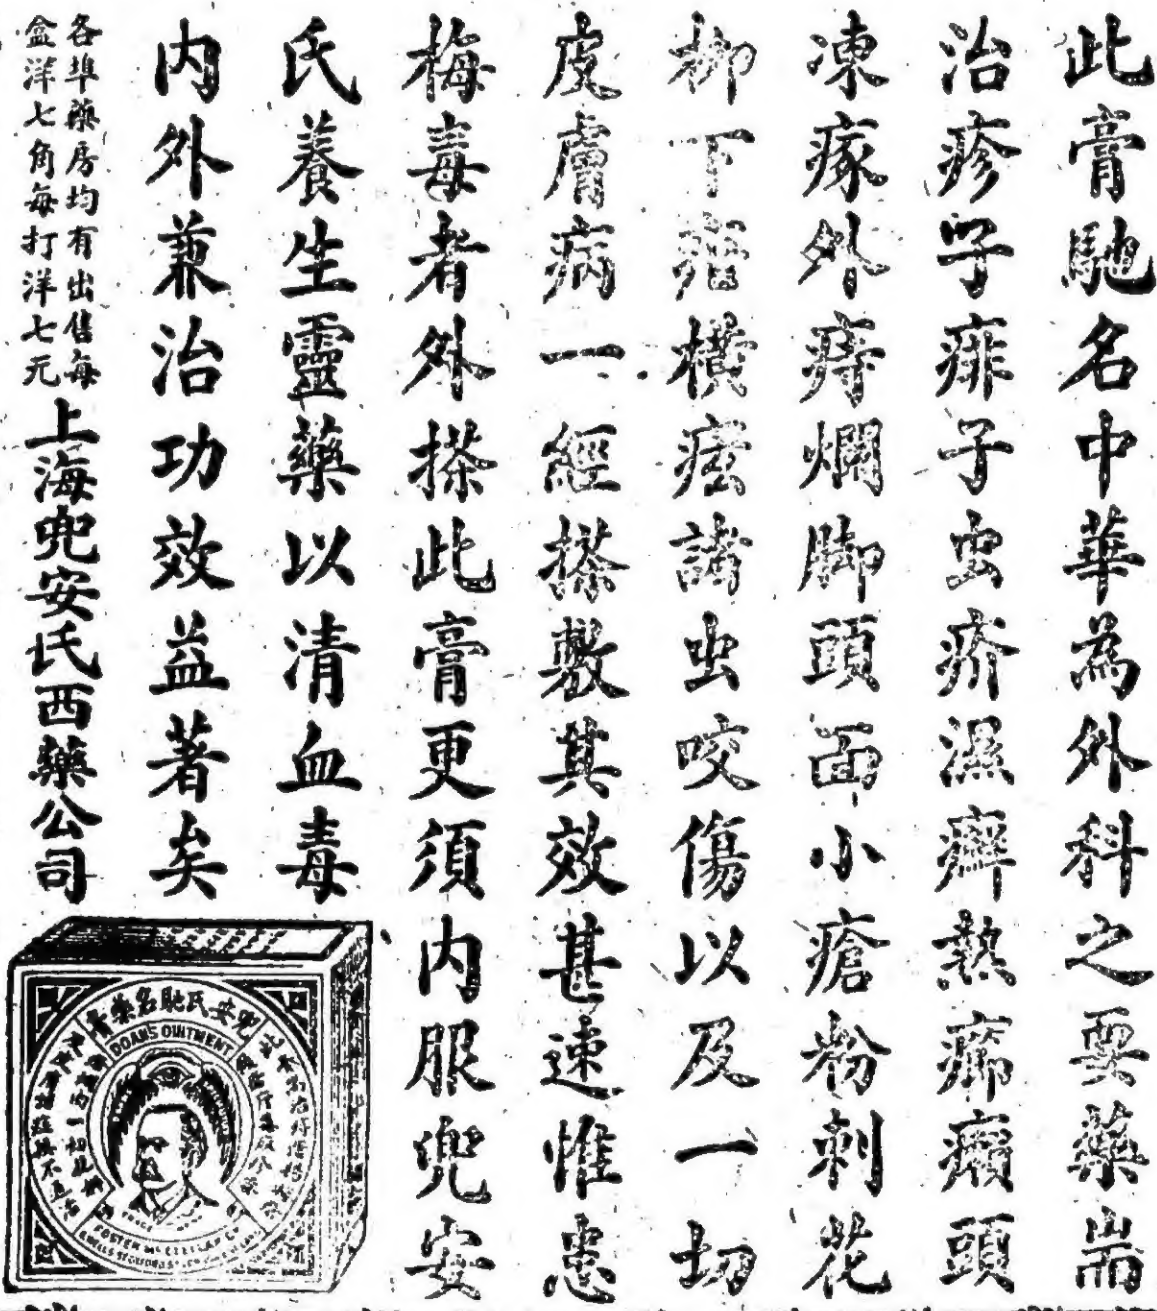 此膏馳名中華為外科之要藥耑
治疹子痱子虫疥濕癬熱癤癩頭
凍瘃外痔爛脚頭面小瘡粉刺花
柳下疳橫痃諸虫咬傷以及一切
皮膚病一經搽敷其效甚速惟患
梅毒者外搽此膏更須内服兜安
氏養生靈藥以清血毒
内外兼治功效益著矣
各埠藥房均有出售每
盒洋七角每打洋七元
上海兜安氏西藥公司
兜安氏馳名藥膏
DOAN'S OINTMENT
FOSTER McCLELLAN Co